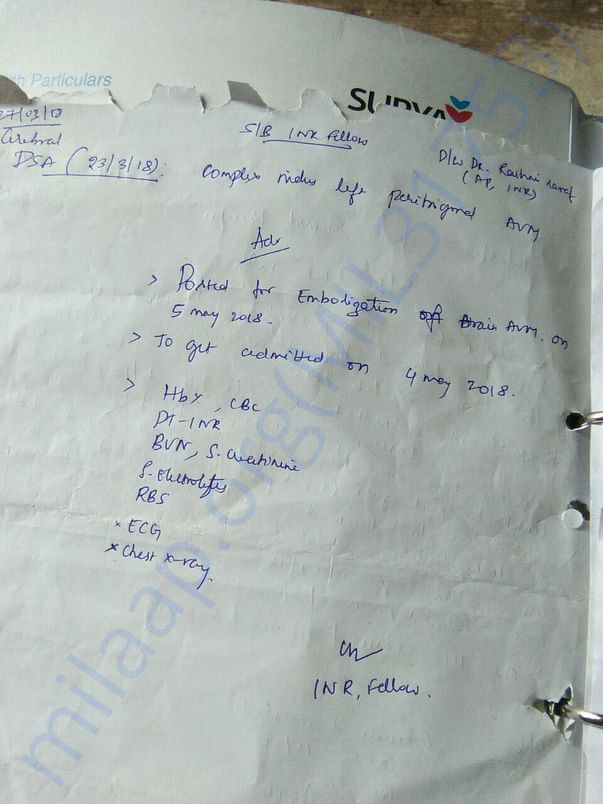 th Particulars
SURYA
27/03/18
S/B INR Fellow
D/W Dr. Rashmi Saraf
(AP, INR)
Cerebral
DSA (23/3/18): Complex nidus left peritrigonal AVM
Adv
> Posted for Embolization of brain AVM. on
5 may 2018.
> To get admitted on 4 may 2018.
> Hb%, CBC
PT-INR
BUN, S. Creatinine
S. Electrolytes
RBS
x ECG
x Chest x-ray.
INR, Fellow.
milaap.org(MIL31752)